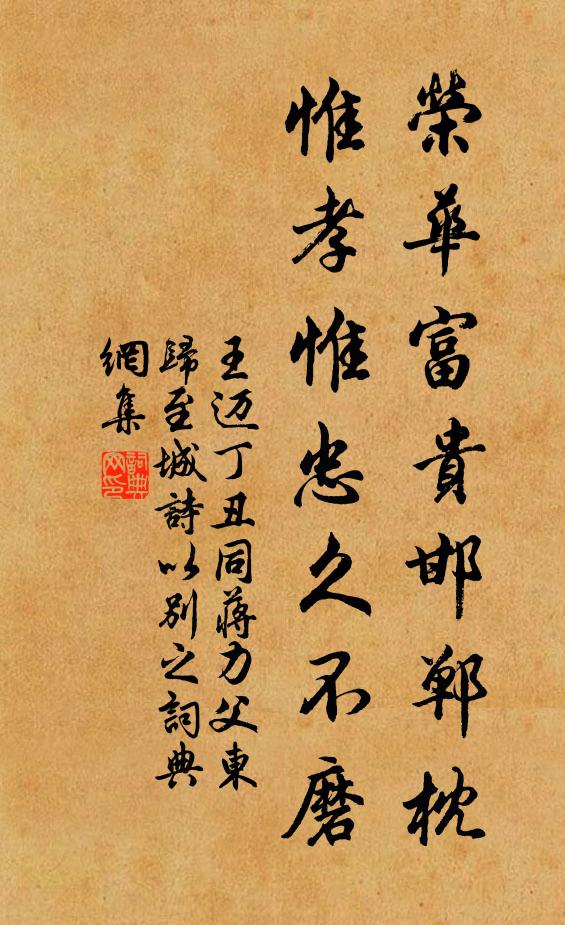 榮華富貴邯鄲枕
惟孝惟忠久不磨
王迈丁丑同蔣力父東
歸至城詩以别之詞典
網集
詞典
网印